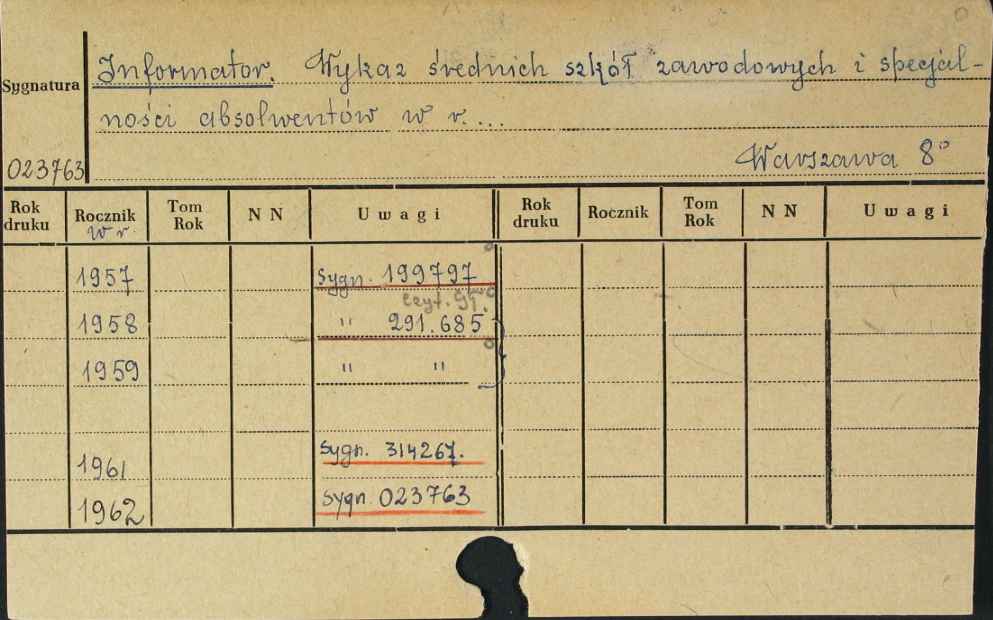 Informator. Wykaz średnich szkół zawodowych i specjal-
Sygnatura
ności absolwentów w r....
023763
Warszawa 8°
Rok druku Rocznik w r. Tom Rok N N Uwagi Rok druku Rocznik Tom Rok N N Uwagi
1957 Sygn. 199797
czyt. gł.
1958 " 291.685
1959 " "
1961 Sygn. 314267.
1962 Sygn 023763